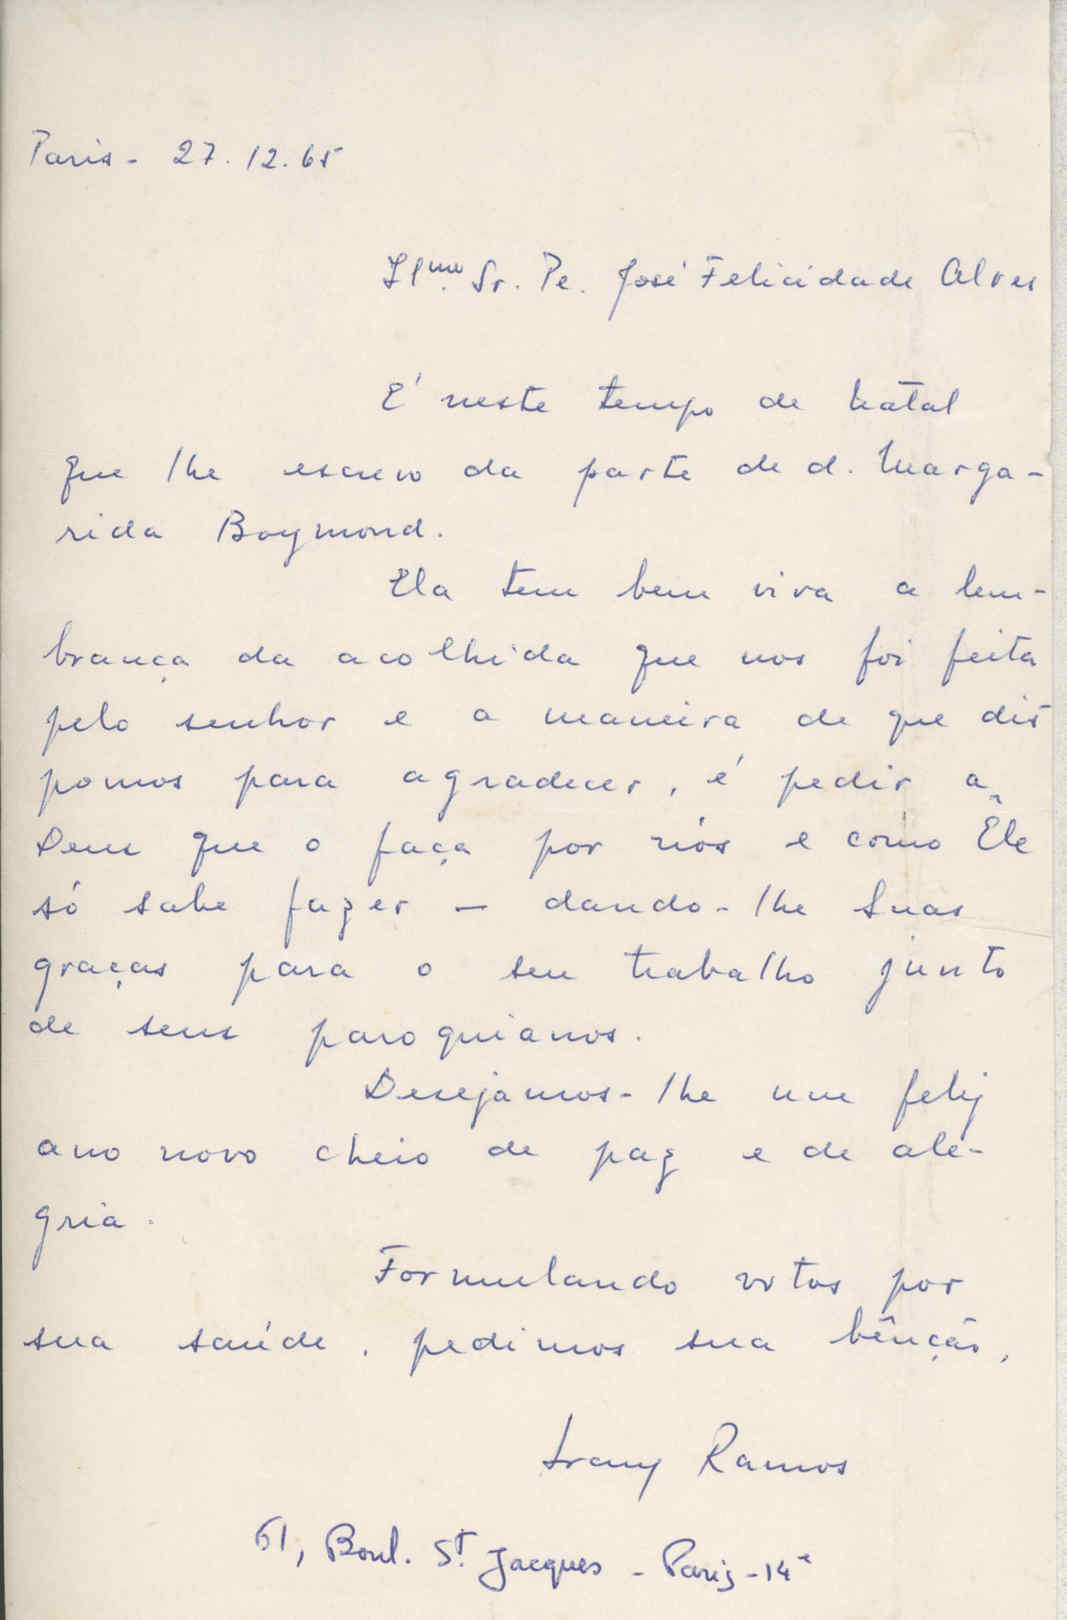 Paris - 27.12.65
Ilmo. Sr. Pe. José Felicidade Alves
É neste tempo de Natal
que lhe escrevo da parte de d. Marga-
rida Boymond.
Ela tem bem viva a lem-
brança da acolhida que nos foi feita
pelo senhor e a maneira de que dis
pomos para agradecer, é pedir a
Deus que o faça por nós e como Êle
só sabe fazer - dando-lhe Suas
graças para o seu trabalho junto
de seus paroquianos.
Desejamos-lhe um feliz
ano novo cheio de paz e de ale-
gria.
Formulando votos por
sua saúde, pedimos sua bênção,
Irany Ramos
61, Boul. St. Jacques - Paris - 14e